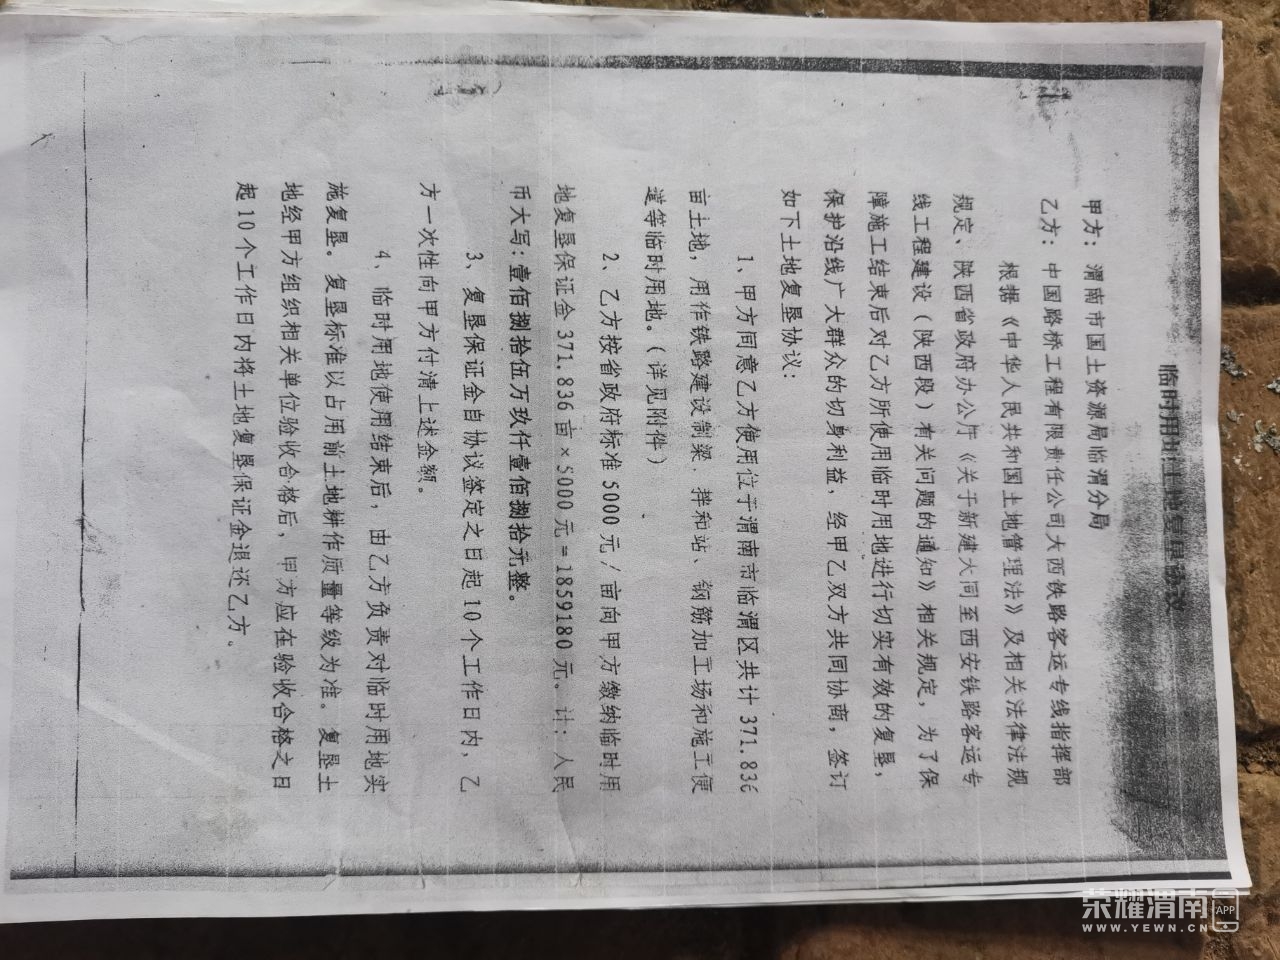 临时用地土地复垦协议
甲方：渭南市国土资源局临渭分局
乙方：中国路桥工程有限责任公司大西铁路客运专线指挥部
根据《中华人民共和国土地管理法》及相关法律法规
规定、陕西省政府办公厅《关于新建大同至西安铁路客运专
线工程建设（陕西段）有关问题的通知》相关规定，为了保
障施工结束后对乙方所使用临时用地进行切实有效的复垦，
保护沿线广大群众的切身利益，经甲乙双方共同协商，签订
如下土地复垦协议：
1、甲方同意乙方使用位于渭南市临渭区共计 371.836
亩土地，用作铁路建设制梁、拌和站、钢筋加工场和施工便
道等临时用地。（详见附件）
2、乙方按省政府标准 5000 元/亩向甲方缴纳临时用
地复垦保证金 371.836 亩×5000 元=1859180 元。计：人民
币大写：壹佰捌拾伍万玖仟壹佰捌拾元整。
3、复垦保证金自协议签定之日起 10 个工作日内，乙
方一次性向甲方付清上述金额。
4、临时用地使用结束后，由乙方负责对临时用地实
施复垦。复垦标准以占用前土地耕作质量等级为准。复垦土
地经甲方组织相关单位验收合格后，甲方应在验收合格之日
起 10 个工作日内将土地复垦保证金退还乙方。
荣耀渭南 APP
WWW.YEWN.CN